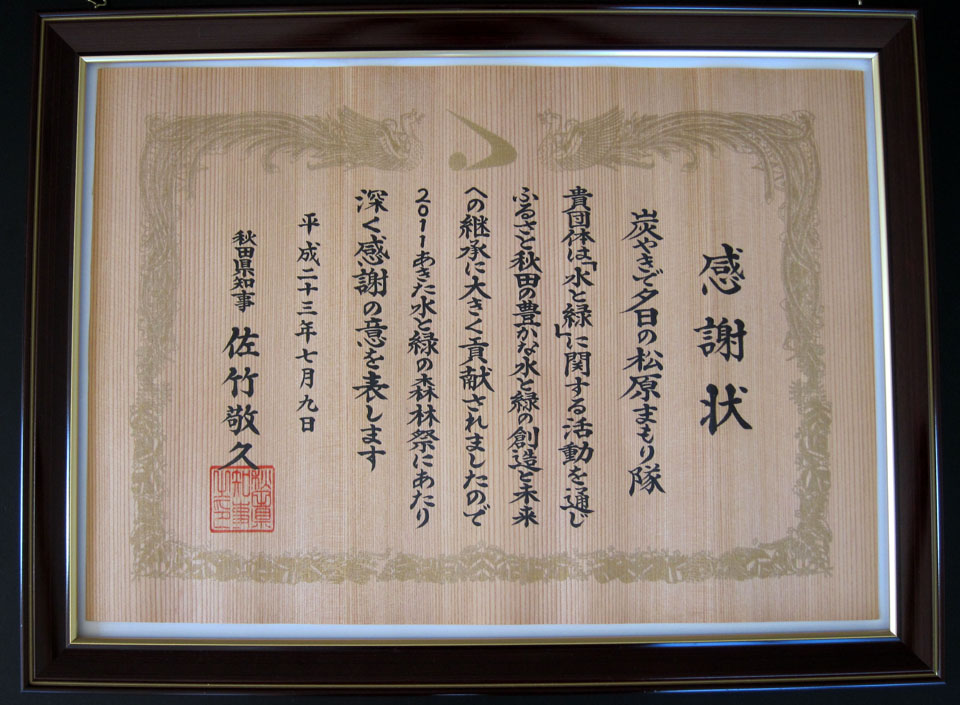 感謝状
炭やきで夕日の松原まもり隊
貴団体は「水と緑」に関する活動を通じ
ふるさと秋田の豊かな水と緑の創造と未来
への継承に大きく貢献されましたので
2011あきた水と緑の森林祭にあたり
深く感謝の意を表します
平成二十三年七月九日
秋田県知事 佐竹敬久